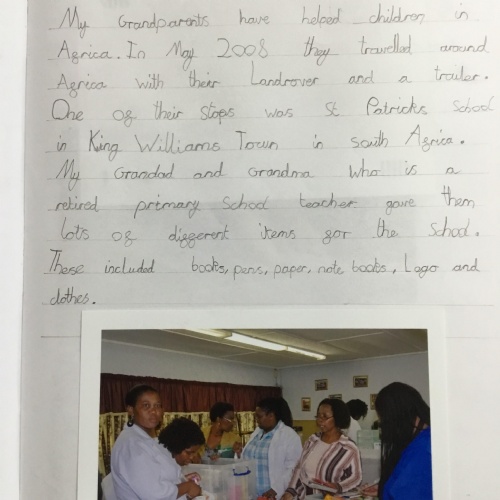 My Grandparents have helped children in
Africa. In May 2008 they travelled around
Africa with their Landrover and a trailer.
One of their stops was St Patricks School
in King Williams Town in South Africa.
My Grandad and Grandma who is a
retired primary School teacher gave them
lots of different items for the School.
These included books, pens, paper, note books, Lego and
clothes.